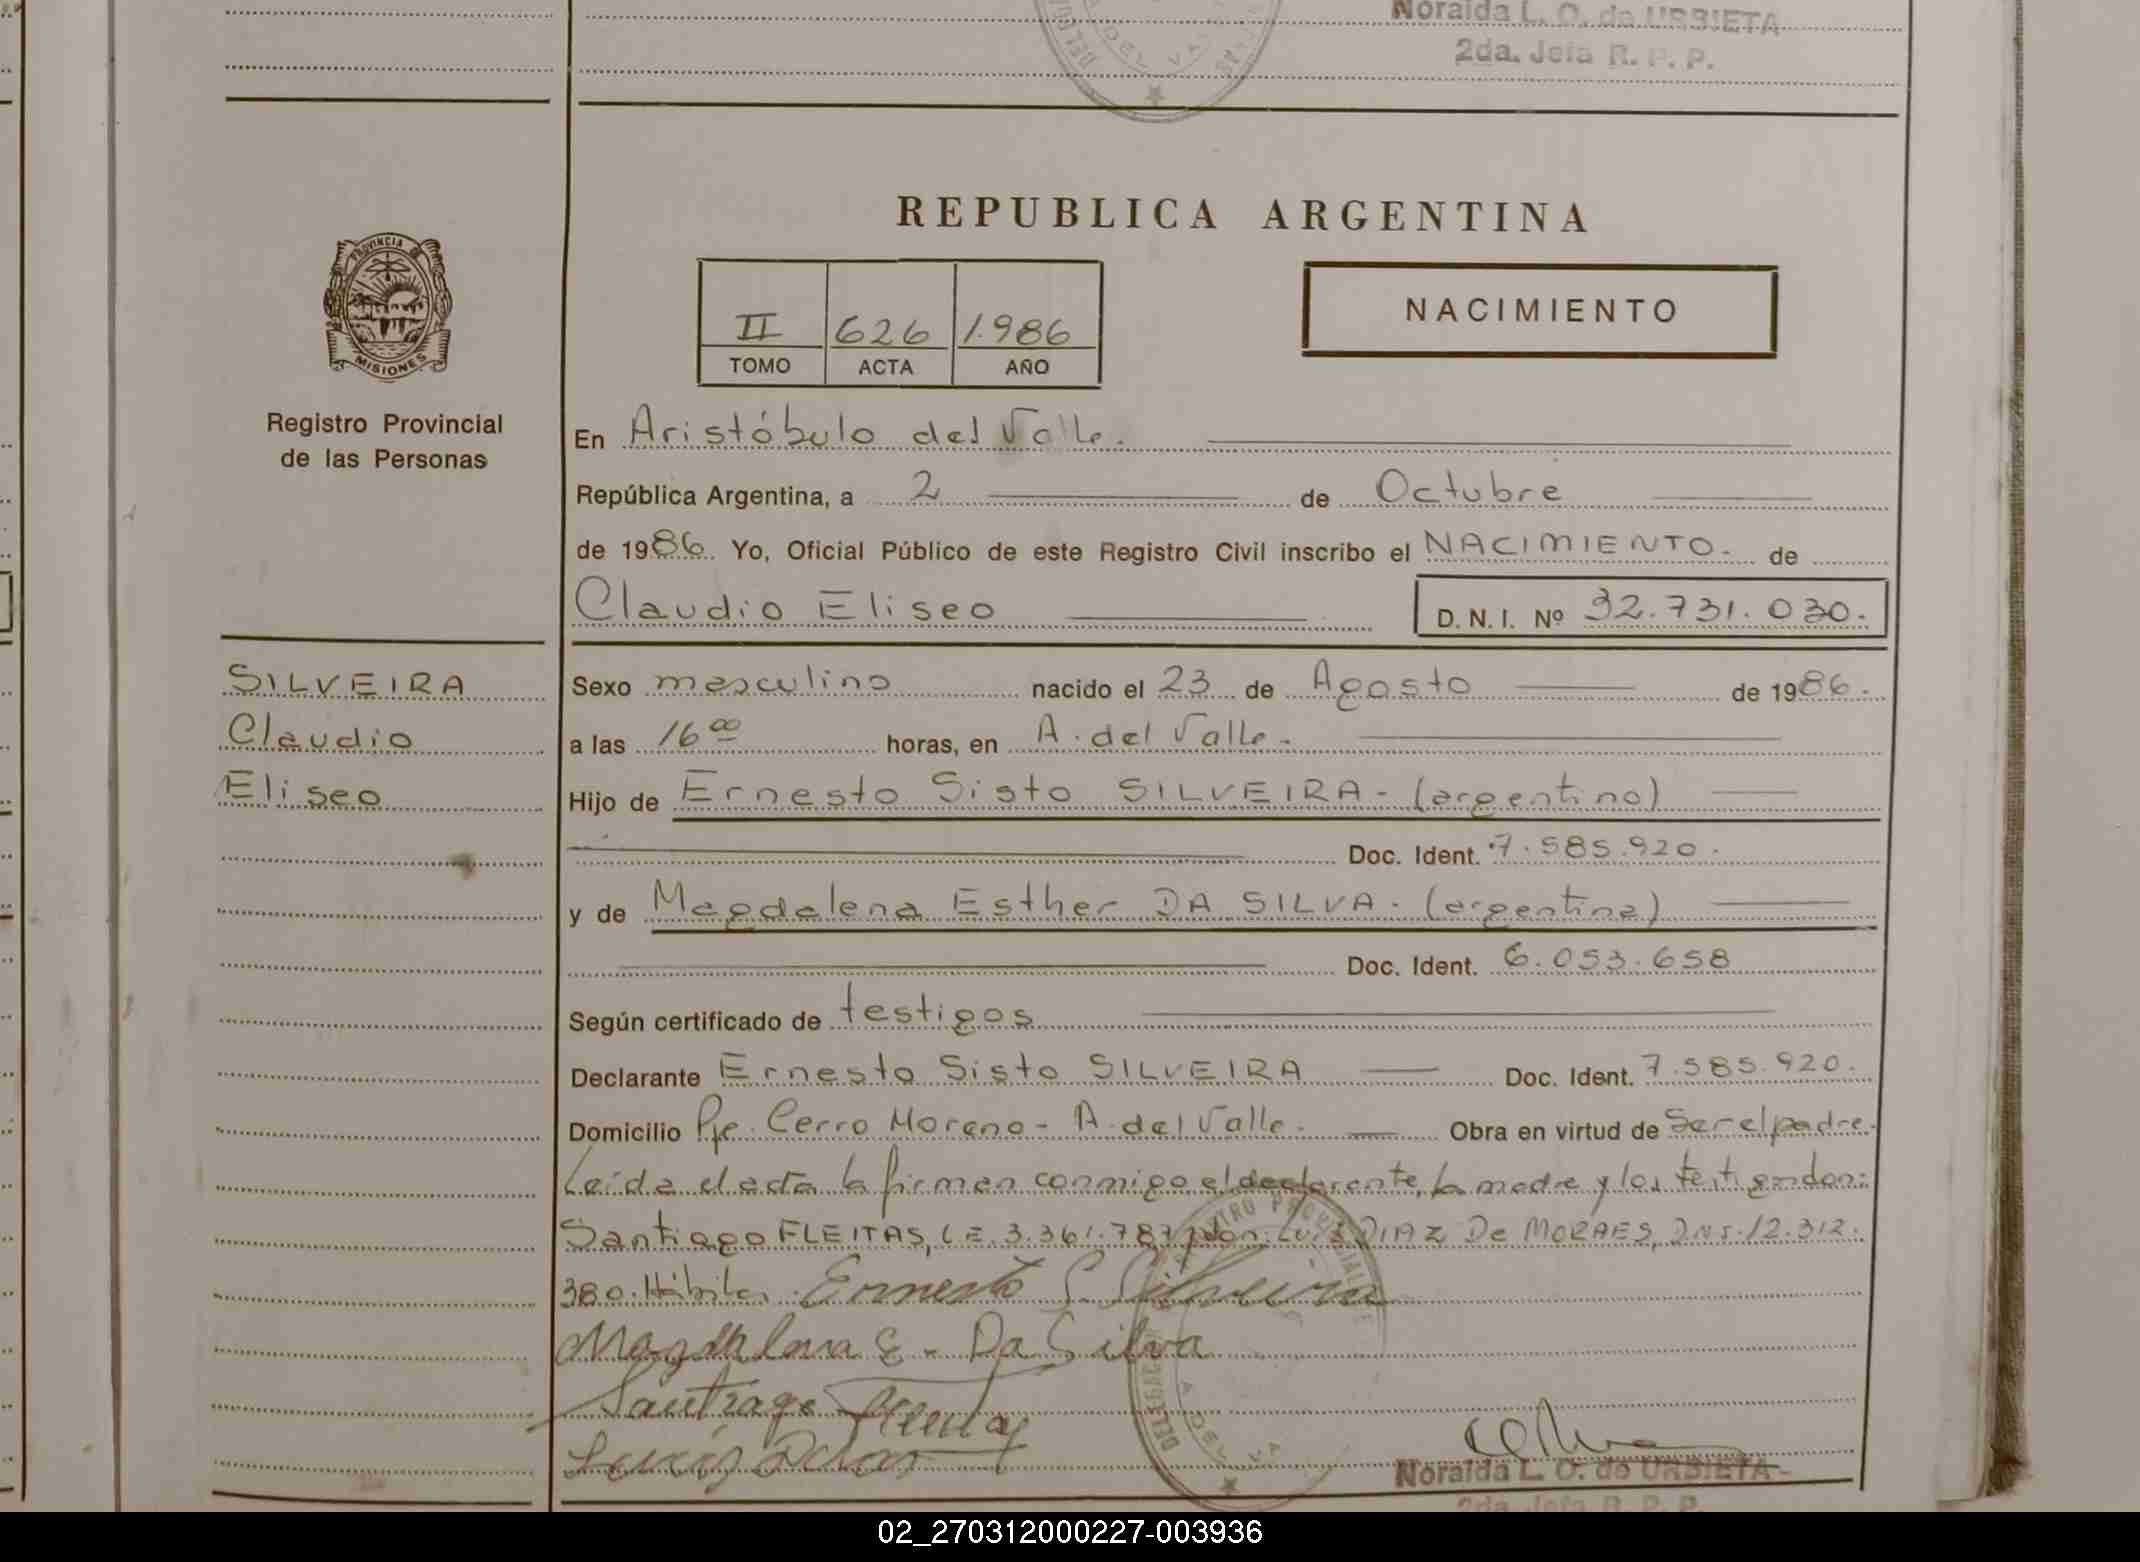 Noraida L. O. de URBIETA
2da. Jefa R. P. P.
REPUBLICA ARGENTINA
PROVINCIA
MISIONES
Registro Provincial
de las Personas
II 626 1.986
TOMO ACTA AÑO
NACIMIENTO
En Aristóbulo del Valle.
República Argentina, a 2 de Octubre
de 1986. Yo, Oficial Público de este Registro Civil inscribo el NACIMIENTO. de
Claudio Eliseo D. N. I. Nº 32.731.030.
SILVEIRA
Claudio
Eliseo
Sexo masculino nacido el 23 de Agosto de 1986.
a las 16 00 horas, en A. del Valle.
Hijo de Ernesto Sisto SILVEIRA - (argentino)
Doc. Ident. 7.585.920.
y de Magdalena Esther DA SILVA. (argentina)
Doc. Ident. 6.053.658
Según certificado de testigos
Declarante Ernesto Sisto SILVEIRA Doc. Ident. 7.585.920.
Domicilio Pje. Cerro Moreno - A. del Valle. Obra en virtud de ser el padre.
Leída el acta la firman conmigo el declarante, la madre y los testigos don:
Santiago FLEITAS, L.E. 3.361.787 y don: Luis DIAZ De MORAES, D.N.I. 12.312.
380. Hábiles.
Ernesto S. Silveira
Magdalena E. Da Silva
Santiago Fleitas
Luis Diaz
Noraida L. O. de URBIETA
2da. Jefa R. P. P.
02_270312000227-003936